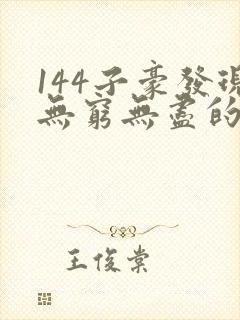 144子豪發現
無窮無盡的
王俊棠